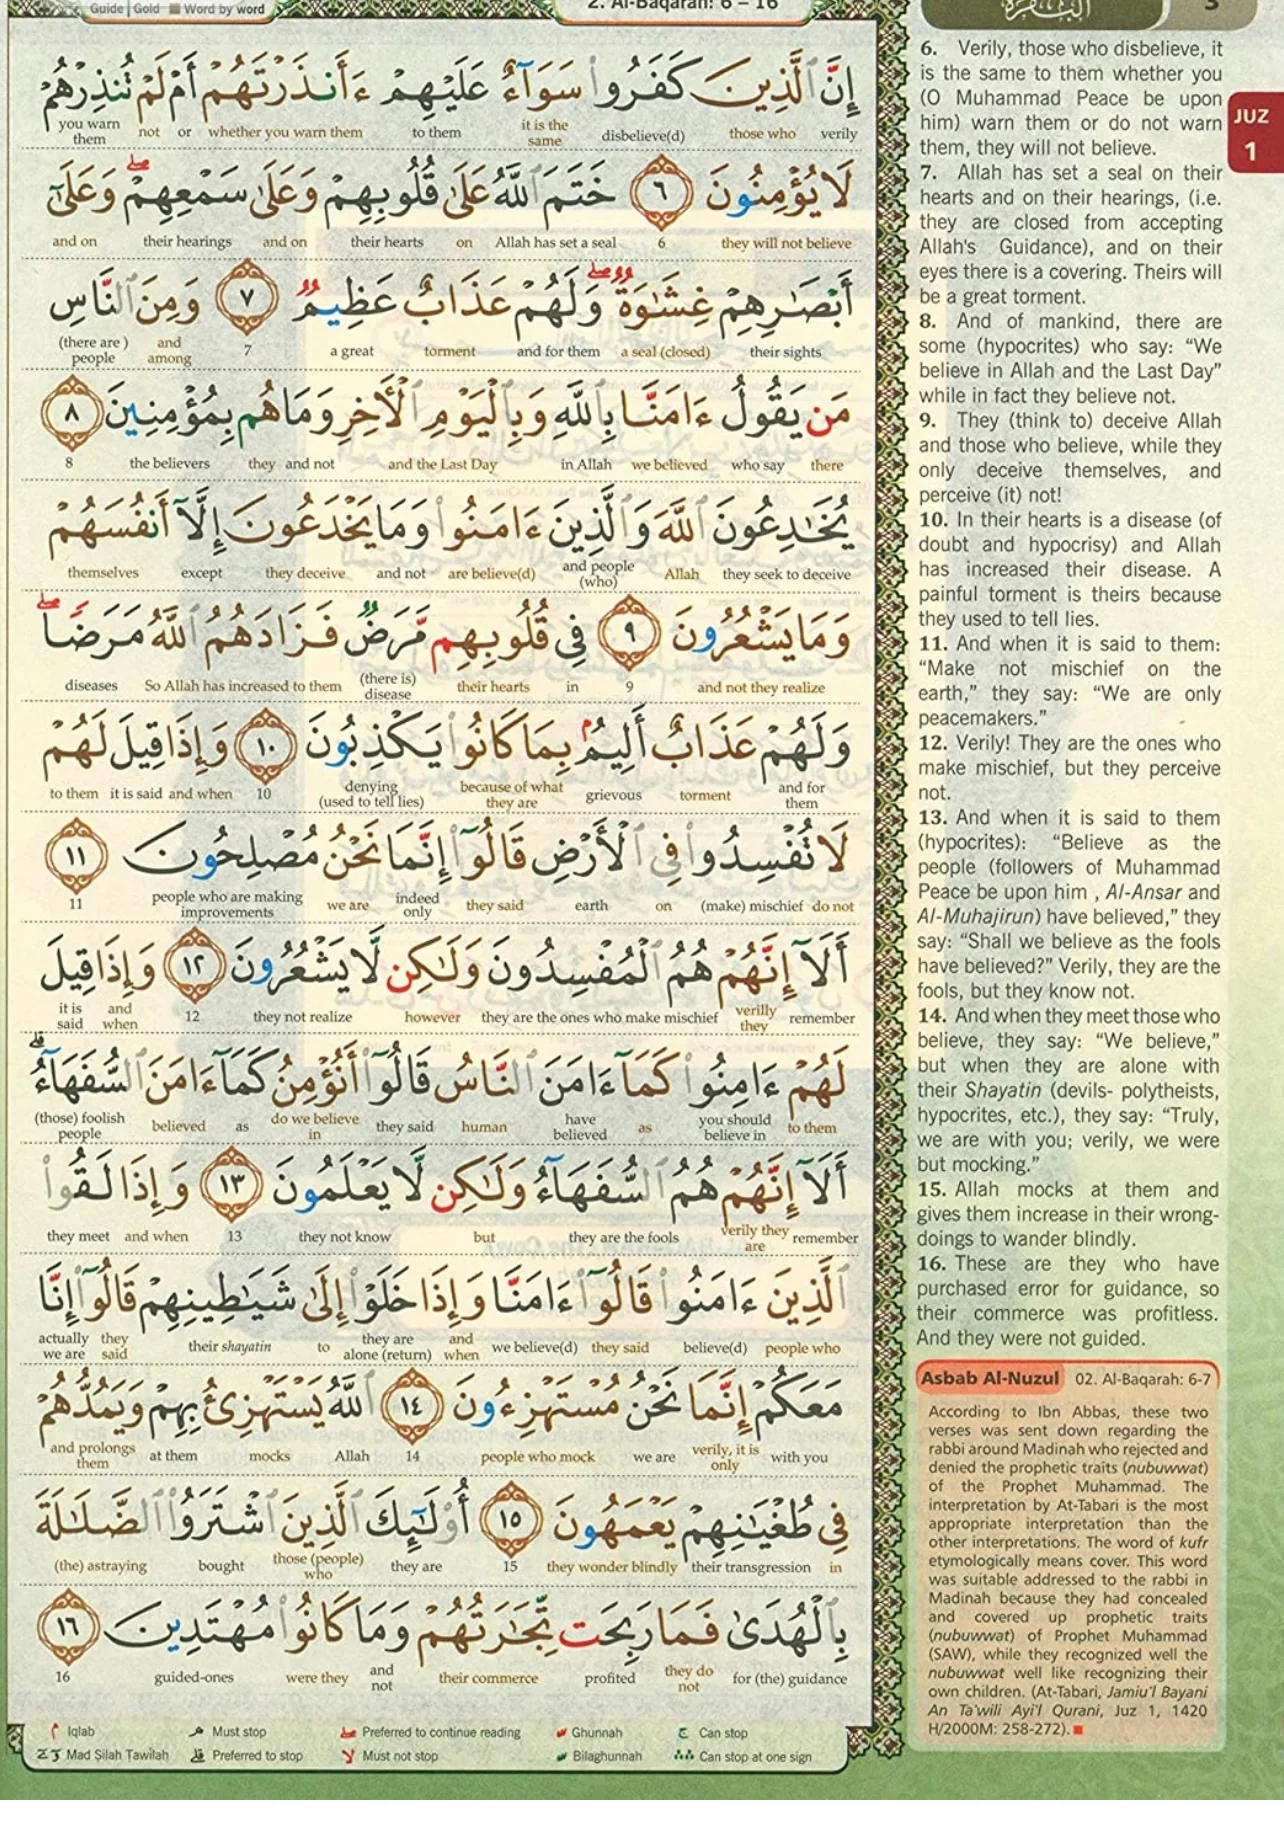 Guide | Gold ■ Word by word
2. Al-Baqarah: 6 – 16
3
إِنَّ الَّذِينَ كَفَرُوا سَوَآءٌ عَلَيْهِمْ ءَأَنذَرْتَهُمْ أَمْ لَمْ تُنذِرْهُمْ
verily those who disbelieve(d) it is the same to them whether you warn them or not you warn them
لَا يُؤْمِنُونَ ٦ خَتَمَ اللَّهُ عَلَىٰ قُلُوبِهِمْ وَعَلَىٰ سَمْعِهِمْ ۖ وَعَلَىٰٓ
they will not believe 6 Allah has set a seal on their hearts and on their hearings and on
أَبْصَٰرِهِمْ غِشَٰوَةٌ ۖ وَلَهُمْ عَذَابٌ عَظِيمٌ ٧ وَمِنَ النَّاسِ
their sights a seal (closed) and for them torment a great 7 and among (there are ) people
مَن يَقُولُ ءَامَنَّا بِاللَّهِ وَبِالْيَوْمِ الْأَخِرِ وَمَا هُم بِمُؤْمِنِينَ ٨
there who say we believed in Allah and the Last Day and not they the believers 8
يُخَٰدِعُونَ اللَّهَ وَالَّذِينَ ءَامَنُوا وَمَا يَخْدَعُونَ إِلَّآ أَنفُسَهُمْ
they seek to deceive Allah and people (who) are believe(d) and not they deceive except themselves
وَمَا يَشْعُرُونَ ٩ فِي قُلُوبِهِم مَّرَضٌ فَزَادَهُمُ اللَّهُ مَرَضًا ۖ
and not they realize 9 in their hearts (there is) disease So Allah has increased to them diseases
وَلَهُمْ عَذَابٌ أَلِيمٌ بِمَا كَانُوا يَكْذِبُونَ ١٠ وَإِذَا قِيلَ لَهُمْ
and for them torment grievous because of what they are denying (used to tell lies) 10 and when it is said to them
لَا تُفْسِدُوا فِي الْأَرْضِ قَالُوٓا إِنَّمَا نَحْنُ مُصْلِحُونَ ١١
do not (make) mischief on earth they said indeed only we are people who are making improvements 11
أَلَآ إِنَّهُمْ هُمُ الْمُفْسِدُونَ وَلَٰكِن لَّا يَشْعُرُونَ ١٢ وَإِذَا قِيلَ
remember verilly they they are the ones who make mischief however they not realize 12 and when it is said
لَهُمْ ءَامِنُوا كَمَآ ءَامَنَ النَّاسُ قَالُوٓا أَنُؤْمِنُ كَمَآ ءَامَنَ السُّفَهَآءُ ۗ
to them you should believe in as have believed human they said do we believe in as believed (those) foolish people
أَلَآ إِنَّهُمْ هُمُ السُّفَهَآءُ وَلَٰكِن لَّا يَعْلَمُونَ ١٣ وَإِذَا لَقُوا
remember verily they are they are the fools but they not know 13 and when they meet
الَّذِينَ ءَامَنُوا قَالُوٓا ءَامَنَّا وَإِذَا خَلَوْا إِلَىٰ شَيَٰطِينِهِمْ قَالُوٓا إِنَّا
people who believe(d) they said we believe(d) and when they are alone (return) to their shayatin they said actually we are
مَعَكُمْ إِنَّمَا نَحْنُ مُسْتَهْزِءُونَ ١٤ اللَّهُ يَسْتَهْزِئُ بِهِمْ وَيَمُدُّهُمْ
with you verily, it is only we are people who mock 14 Allah mocks at them and prolongs them
فِي طُغْيَٰنِهِمْ يَعْمَهُونَ ١٥ أُو۟لَٰٓئِكَ الَّذِينَ اشْتَرَوُا الضَّلَٰلَةَ
in their transgression they wonder blindly 15 they are those (people) who bought (the) astraying
بِالْهُدَىٰ فَمَا رَبِحَت تِّجَٰرَتُهُمْ وَمَا كَانُوا مُهْتَدِينَ ١٦
for (the) guidance they do not profited their commerce and not were they guided-ones 16
Iqlab Must stop Preferred to continue reading Ghunnah Can stop
Mad Ṣilah Tawilah Preferred to stop Must not stop Bilaghunnah Can stop at one sign
JUZ
1
6. Verily, those who disbelieve, it
is the same to them whether you
(O Muhammad Peace be upon
him) warn them or do not warn
them, they will not believe.
7. Allah has set a seal on their
hearts and on their hearings, (i.e.
they are closed from accepting
Allah's Guidance), and on their
eyes there is a covering. Theirs will
be a great torment.
8. And of mankind, there are
some (hypocrites) who say: “We
believe in Allah and the Last Day”
while in fact they believe not.
9. They (think to) deceive Allah
and those who believe, while they
only deceive themselves, and
perceive (it) not!
10. In their hearts is a disease (of
doubt and hypocrisy) and Allah
has increased their disease. A
painful torment is theirs because
they used to tell lies.
11. And when it is said to them:
“Make not mischief on the
earth,” they say: “We are only
peacemakers.”
12. Verily! They are the ones who
make mischief, but they perceive
not.
13. And when it is said to them
(hypocrites): “Believe as the
people (followers of Muhammad
Peace be upon him , Al-Ansar and
Al-Muhajirun) have believed,” they
say: “Shall we believe as the fools
have believed?” Verily, they are the
fools, but they know not.
14. And when they meet those who
believe, they say: “We believe,”
but when they are alone with
their Shayatin (devils- polytheists,
hypocrites, etc.), they say: “Truly,
we are with you; verily, we were
but mocking.”
15. Allah mocks at them and
gives them increase in their wrong-
doings to wander blindly.
16. These are they who have
purchased error for guidance, so
their commerce was profitless.
And they were not guided.
Asbab Al-Nuzul 02. Al-Baqarah: 6-7
According to Ibn Abbas, these two
verses was sent down regarding the
rabbi around Madinah who rejected and
denied the prophetic traits (nubuwwat)
of the Prophet Muhammad. The
interpretation by At-Tabari is the most
appropriate interpretation than the
other interpretations. The word of kufr
etymologically means cover. This word
was suitable addressed to the rabbi in
Madinah because they had concealed
and covered up prophetic traits
(nubuwwat) of Prophet Muhammad
(SAW), while they recognized well the
nubuwwat well like recognizing their
own children. (At-Tabari, Jamiu'l Bayani
An Ta'wili Ayi'l Qurani, Juz 1, 1420
H/2000M: 258-272).